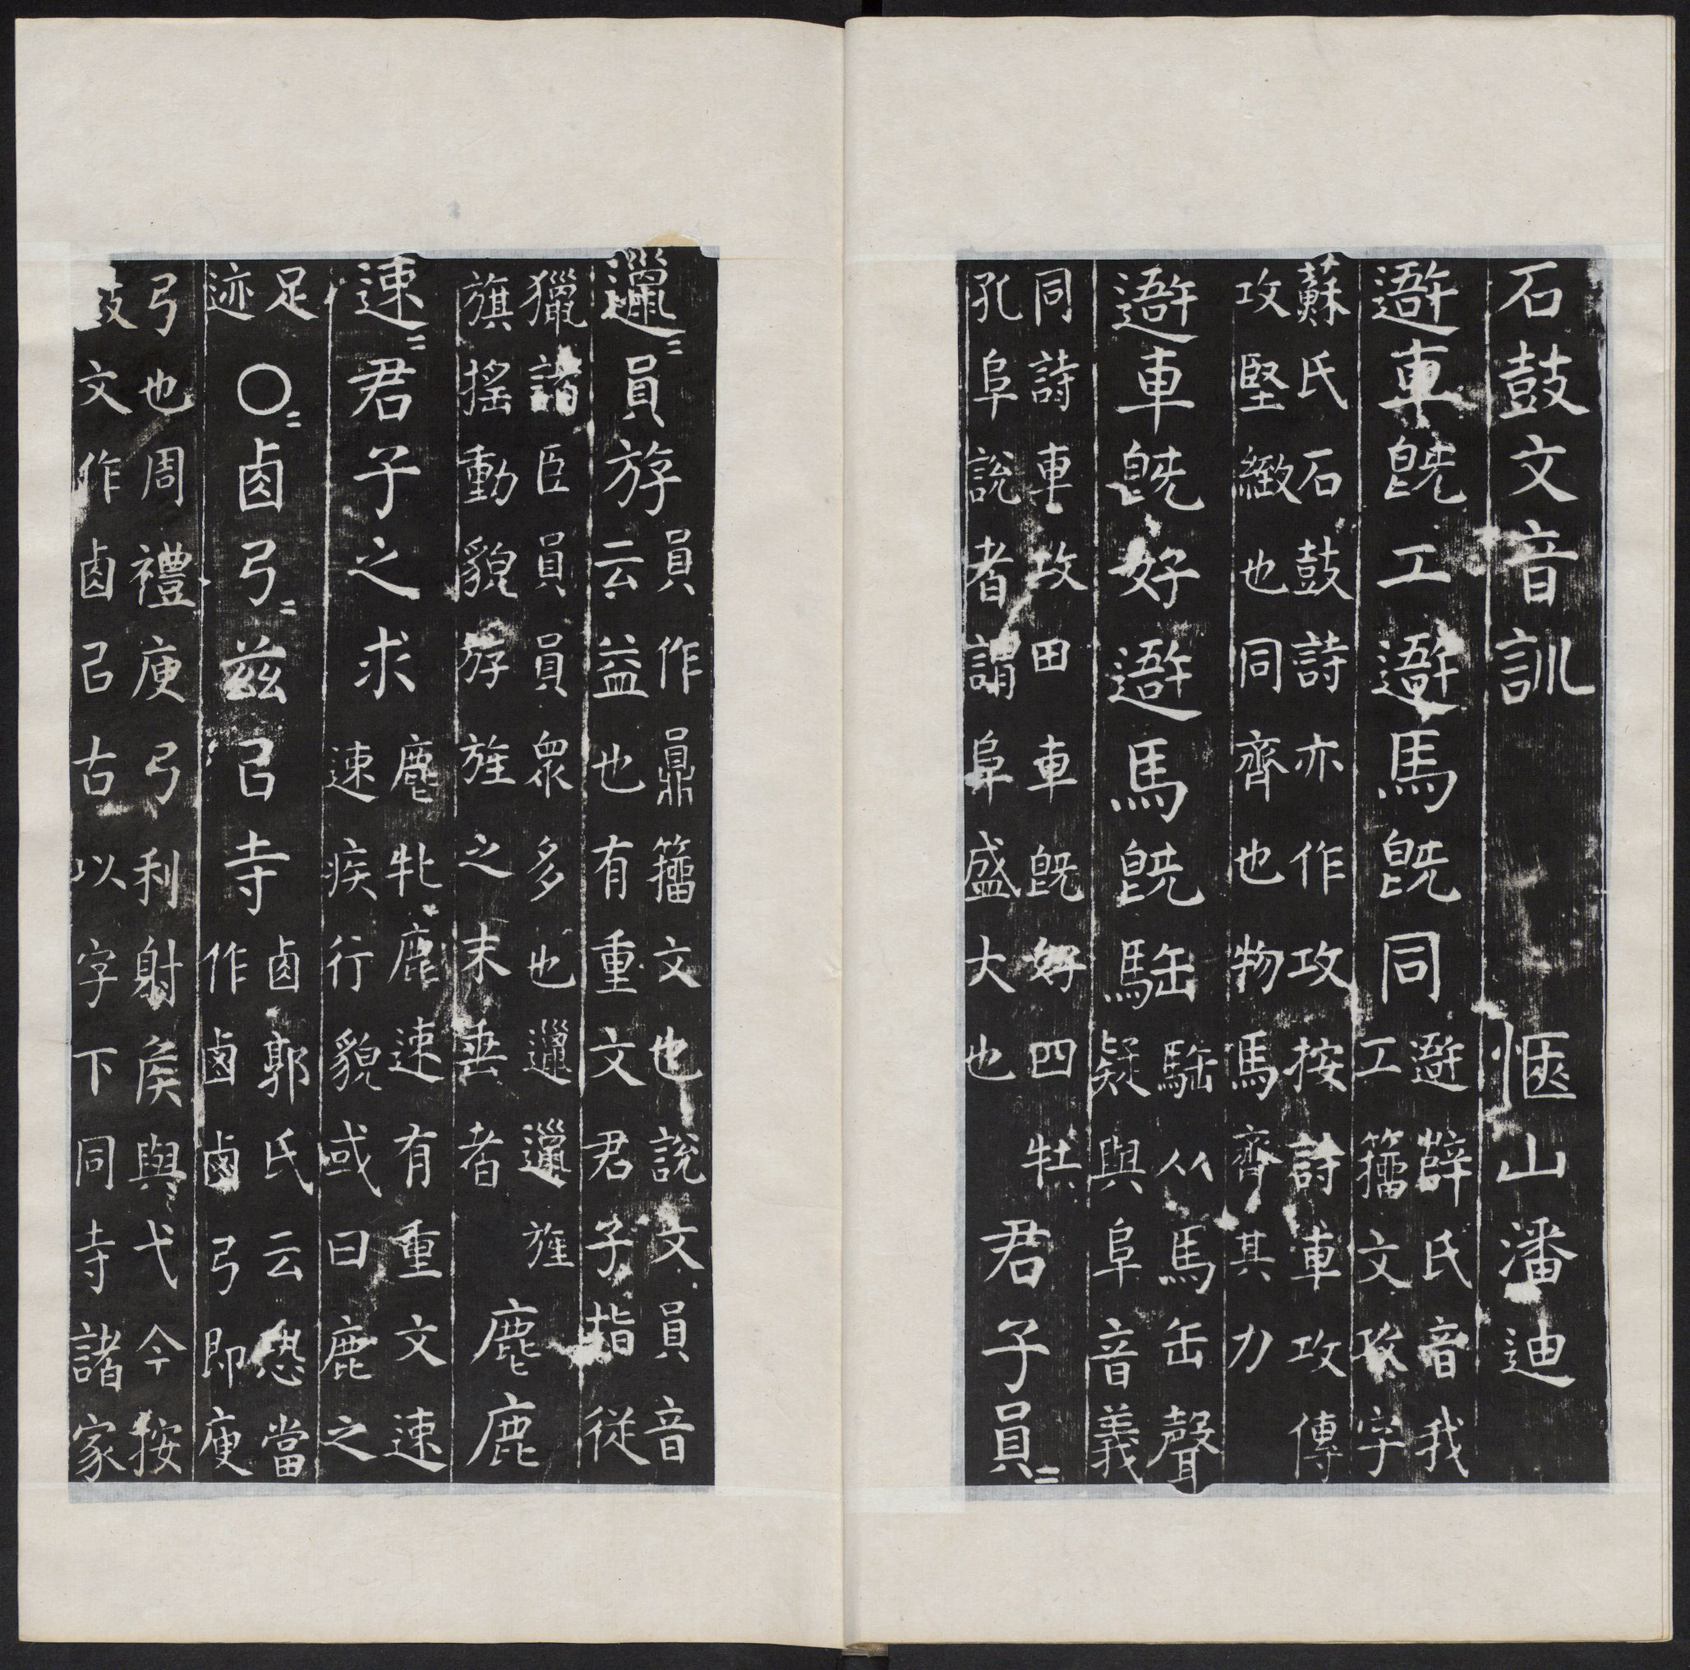 石鼓文音訓 愜山潘迪
車旣工馬旣同 辥氏音我
工籀文攻字
蘇氏石鼓詩亦作攻按詩車攻傳
攻堅緻也同齊也物馬齊其力
車旣好馬旣䮀 䮀从馬缶聲
疑與阜音義
同詩車攻田車旣好四牡
孔阜說者謂阜盛大也
君子員=
邋=員斿 員作鼎籀文也說文員音
云益也有重文君子指從
獵諸臣員員眾多也邋邋旌
旗搖動貌斿旌之末垂者
麀鹿
速=君子之求 麀牝鹿速有重文速
速疾行貌或曰鹿之
足
迹
〇=鹵弓=兹㠯寺 鹵郭氏云恐當
作鹵鹵弓即庾
弓也周禮庾弓利射侯與弋今按
鼓文作鹵㠯古以字下同寺諸家